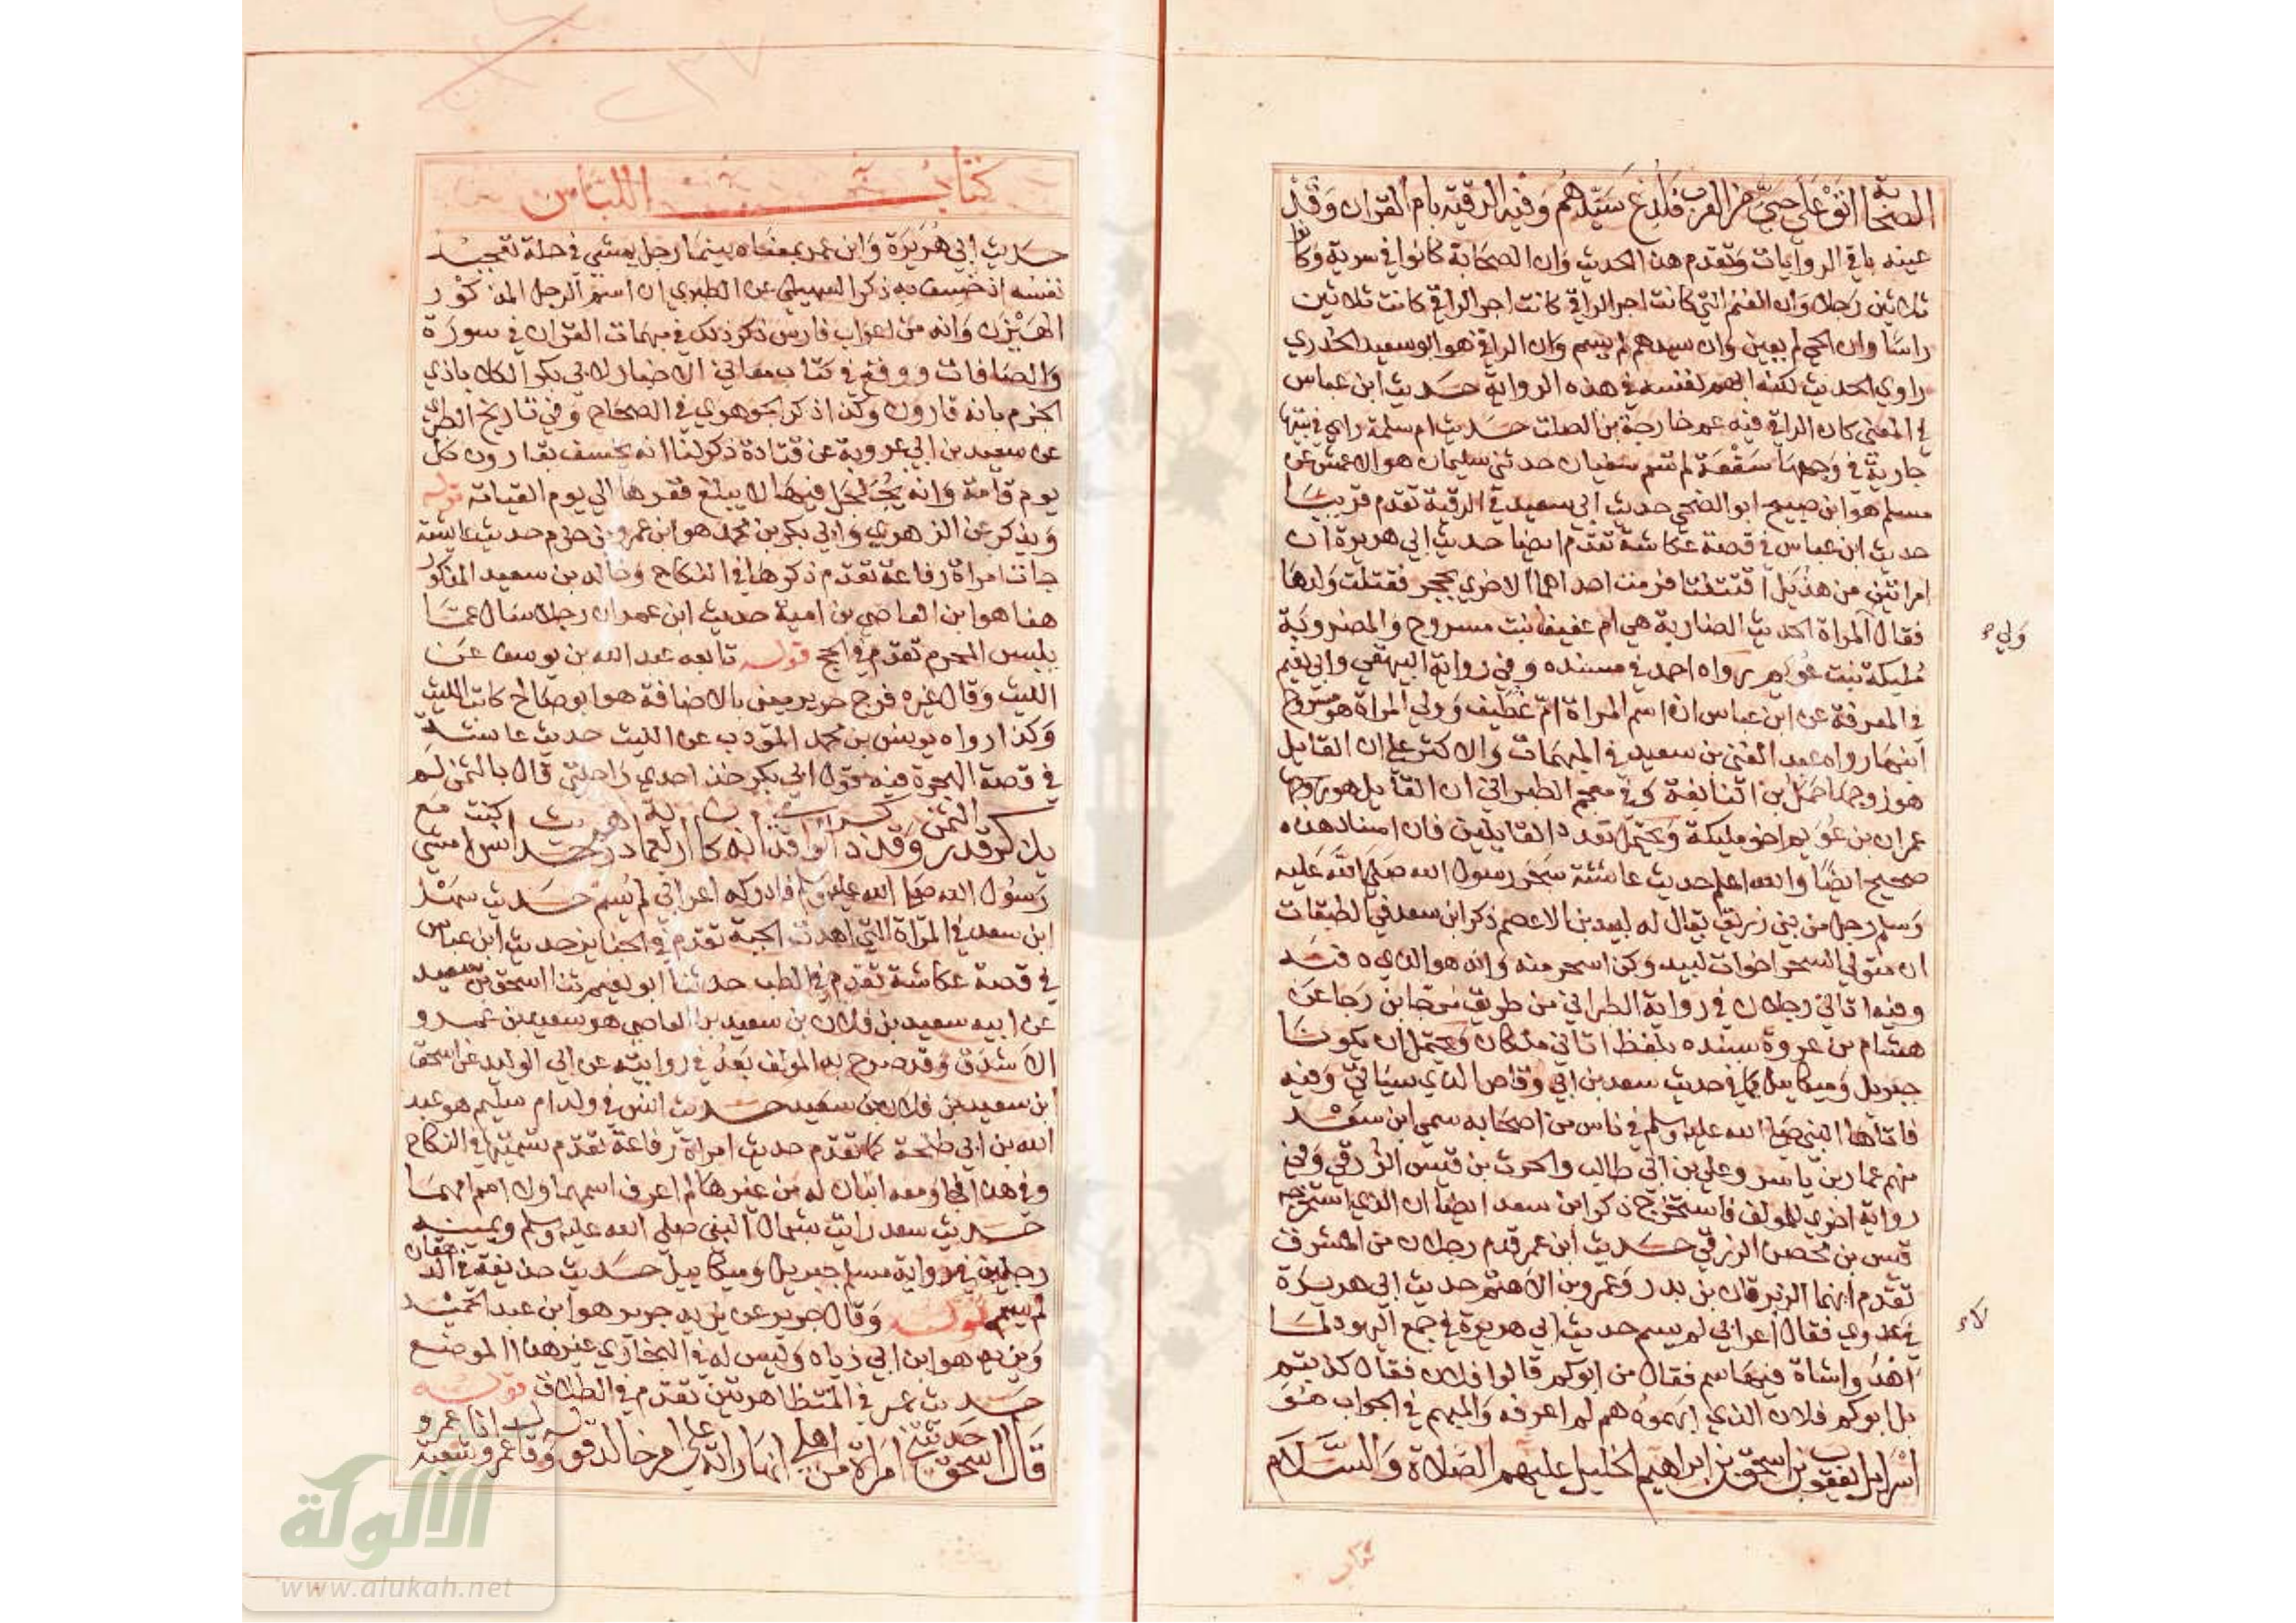 الصحابة اتوا على حي من العرب فلدغ سيدهم وفيه الرقية بام القران وقبل
عينه باقي الروايات وتقدم هذا الحديث وان الصحابة كانوا في سرية وكانوا
ثلاثين رجلا وان الغنم التي كانت اجر الراقي كانت اجر الراقي كانت ثلاثين
راسا وان الحي لم يعين وان سيدهم لم يسم وان الراقي هو ابو سعيد الخدري
راوي الحديث لكنه ابهم نفسه في هذه الرواية حديث ابن عباس
في المعنى كان الراقي فيه عم خارجة بن الصلت حديث ام سلمة راى في بيتها
جارية في وجهها سفعة لم تسم سفيان حدثني سليمان هو الاعمش عن
مسلم هو ابن صبيح ابو الضحى حديث ابي سعيد في الرقية تقدم قريبا
حديث ابن عباس في قصة عكاشة تقدم ايضا حديث ابي هريرة ان
امراتين من هذيل اقتتلتا فرمت احداهما الاخرى بحجر فقتلت ولدها
فقال المراة الحديث الضاربة هي ام عفيف بنت مسروح والمضروبة
ولي ص
مليكة بنت عويمر رواه احمد في مسنده وفي رواية البيهقي وابي نعيم
في المعرفة عن ابن عباس ان اسم المراة ام غطيف وولي المراة هو مسروح
ابنها رواه عبد الغني بن سعيد في المبهمات والاكثر على ان القايل
هو زوجها حمل بن النابغة وفي معجم الطبراني ان القايل هو
عمران بن عويم اخو مليكة ويحتمل تعدد القايلين فان اسناد هذه
صحيح ايضا والله اعلم حديث عائشة سحر رسول الله صلى الله عليه
وسلم رجل من بني زريق يقال له لبيد بن الاعصم ذكر ابن سعد في الطبقات
ان متولي السحر اخوات لبيد وكن اسحر منه وانه هو الذي دفنه
وفيه اتاني رجلان في رواية الطبراني من طريق مرجا بن رجا عن
هشام بن عروة بسنده بلفظ اتاني ملكان ويحتمل ان يكونا
جبريل وميكاييل كما في حديث سعد بن ابي وقاص الذي سياتي وفيه
فاتاها النبي صلى الله عليه وسلم في ناس من اصحابه سمى ابن سعد
منهم عمار بن ياسر وعلي بن ابي طالب والحرث بن قيس الزرقي وفي
رواية اخرى للمولف فاستخرج ذكر ابن سعد ايضا ان الذي استخرجه
قيس بن محصن الزرقي حديث ابن عمر قدم رجلان من المشرق
تقدم انهما الزبرقان بن بدر وعمرو بن الاهتم حديث ابي هريرة
في عدوى فقال اعرابي لم يسم حديث ابي هريرة في جمع اليهود لما
اهدوا شاة فيها سم فقال من ابوكم قالوا فلان فقال كذبتم
بل ابوكم فلان الذي ابهموه هم لم اعرفه والمبهم في الجواب هو
اسرايل يعقوب بن اسحق بن ابراهيم الخليل عليهم الصلاة والسلام
كتاب
كتاب اللباس
حديث ابي هريرة وابن عمر بمعناه بينما رجل يمشي في حلة تعجبه
نفسه اذ خسف به ذكر السهيلي عن الطبري ان اسم الرجل المذكور
الهيزن وانه من اعراب فارس ذكر ذلك في مبهمات القران في سورة
والصافات ووقع في كتاب معاني الاخبار لابي بكر الكلاباذي
الجزم بانه قارون وكذا ذكر الجوهري في الصحاح وفي تاريخ الطبري
عن سعيد بن ابي عروبة عن قتادة ذكر لنا انه يخسف بقارون كل
يوم قامة وانه يجلجل فيها لا يبلغ قعرها الى يوم القيامة قوله
ويذكر عن الزهري وابي بكر بن محمد هو ابن عمرو بن حزم حديث عايشة
جات امراة رفاعة تقدم ذكرها في النكاح وخالد بن سعيد المذكور
هنا هو ابن العاصي بن امية حديث ابن عمر ان رجلا سال عما
يلبس المحرم تقدم في الحج قوله تابعه عبد الله بن يوسف عن
الليث وقال غيره فروج حرير يعني بالاضافة هو ابو صالح كاتب الليث
وكذا رواه يونس بن محمد المؤدب عن الليث حديث عائشة
في قصة الهجرة فيه قول ابي بكر خذ احدى راحلتي قال بالثمن لم
يذكر قدر الثمن وقد ذكر الواقدي انه كان اربعماية درهم حديث انس كنت امشي مع
رسول الله صلى الله عليه وسلم فادركه اعرابي لم يسم حديث سهل
ابن سعد في المراة التي اهدت الجبة تقدم في الجنايز حديث ابن عباس
في قصة عكاشة تقدم في الطب حدثنا ابو نعيم ثنا اسحق بن سعيد
عن ابيه سعيد بن فلان بن سعيد بن العاصي هو سعيد بن عمرو
الاشدق وقد صرح به المولف بعد في روايته عن ابي الوليد عن اسحق
ابن سعيد بن فلان بن سعيد حديث انس في ولد ام سليم هو عبد
الله بن ابي طلحة كما تقدم حديث امراة رفاعة تقدم تسميتها في النكاح
وفي هذا فجا ومعه ابنان له من غيرها لم اعرف اسمهما ولا اسم امهما
حديث سعد رايت بشمال النبي صلى الله عليه وسلم ويمينه
رجلين في رواية مسلم جبريل وميكاييل حديث حذيفة في الدهقان
لم يسم قوله وقال جرير عن يزيد جرير هو ابن عبد الحميد
ويزيد هو ابن ابي زياد وليس له في البخاري غير هذا الموضع
حديث عمر في المتظاهرتين تقدم في الطلاق قوله
قال اسحق حدثتني امراة من اهلي انها راته على ام خالد قوله وقال لنا عمرو
الالوكة
www.alukah.net